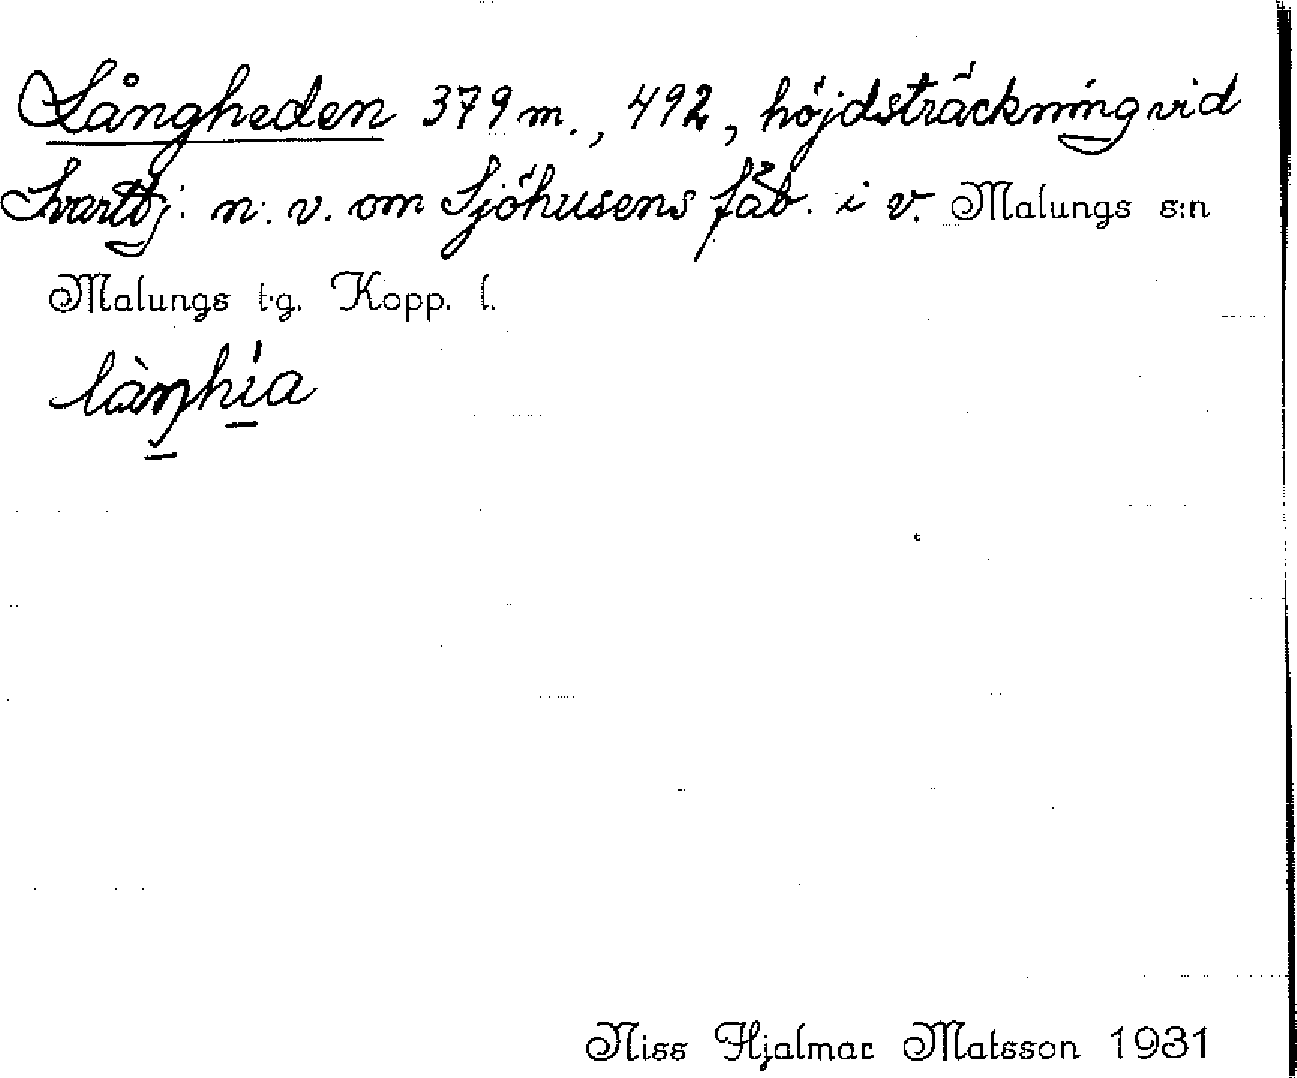 Långheden 379 m., 492, höjdsträckning vid
Svarttj. n. v. om Sjöhusens fäb. i v. Malungs s:n
Malungs t.g. Kopp. l.
làŋhía
Niss Hjalmar Matsson 1931